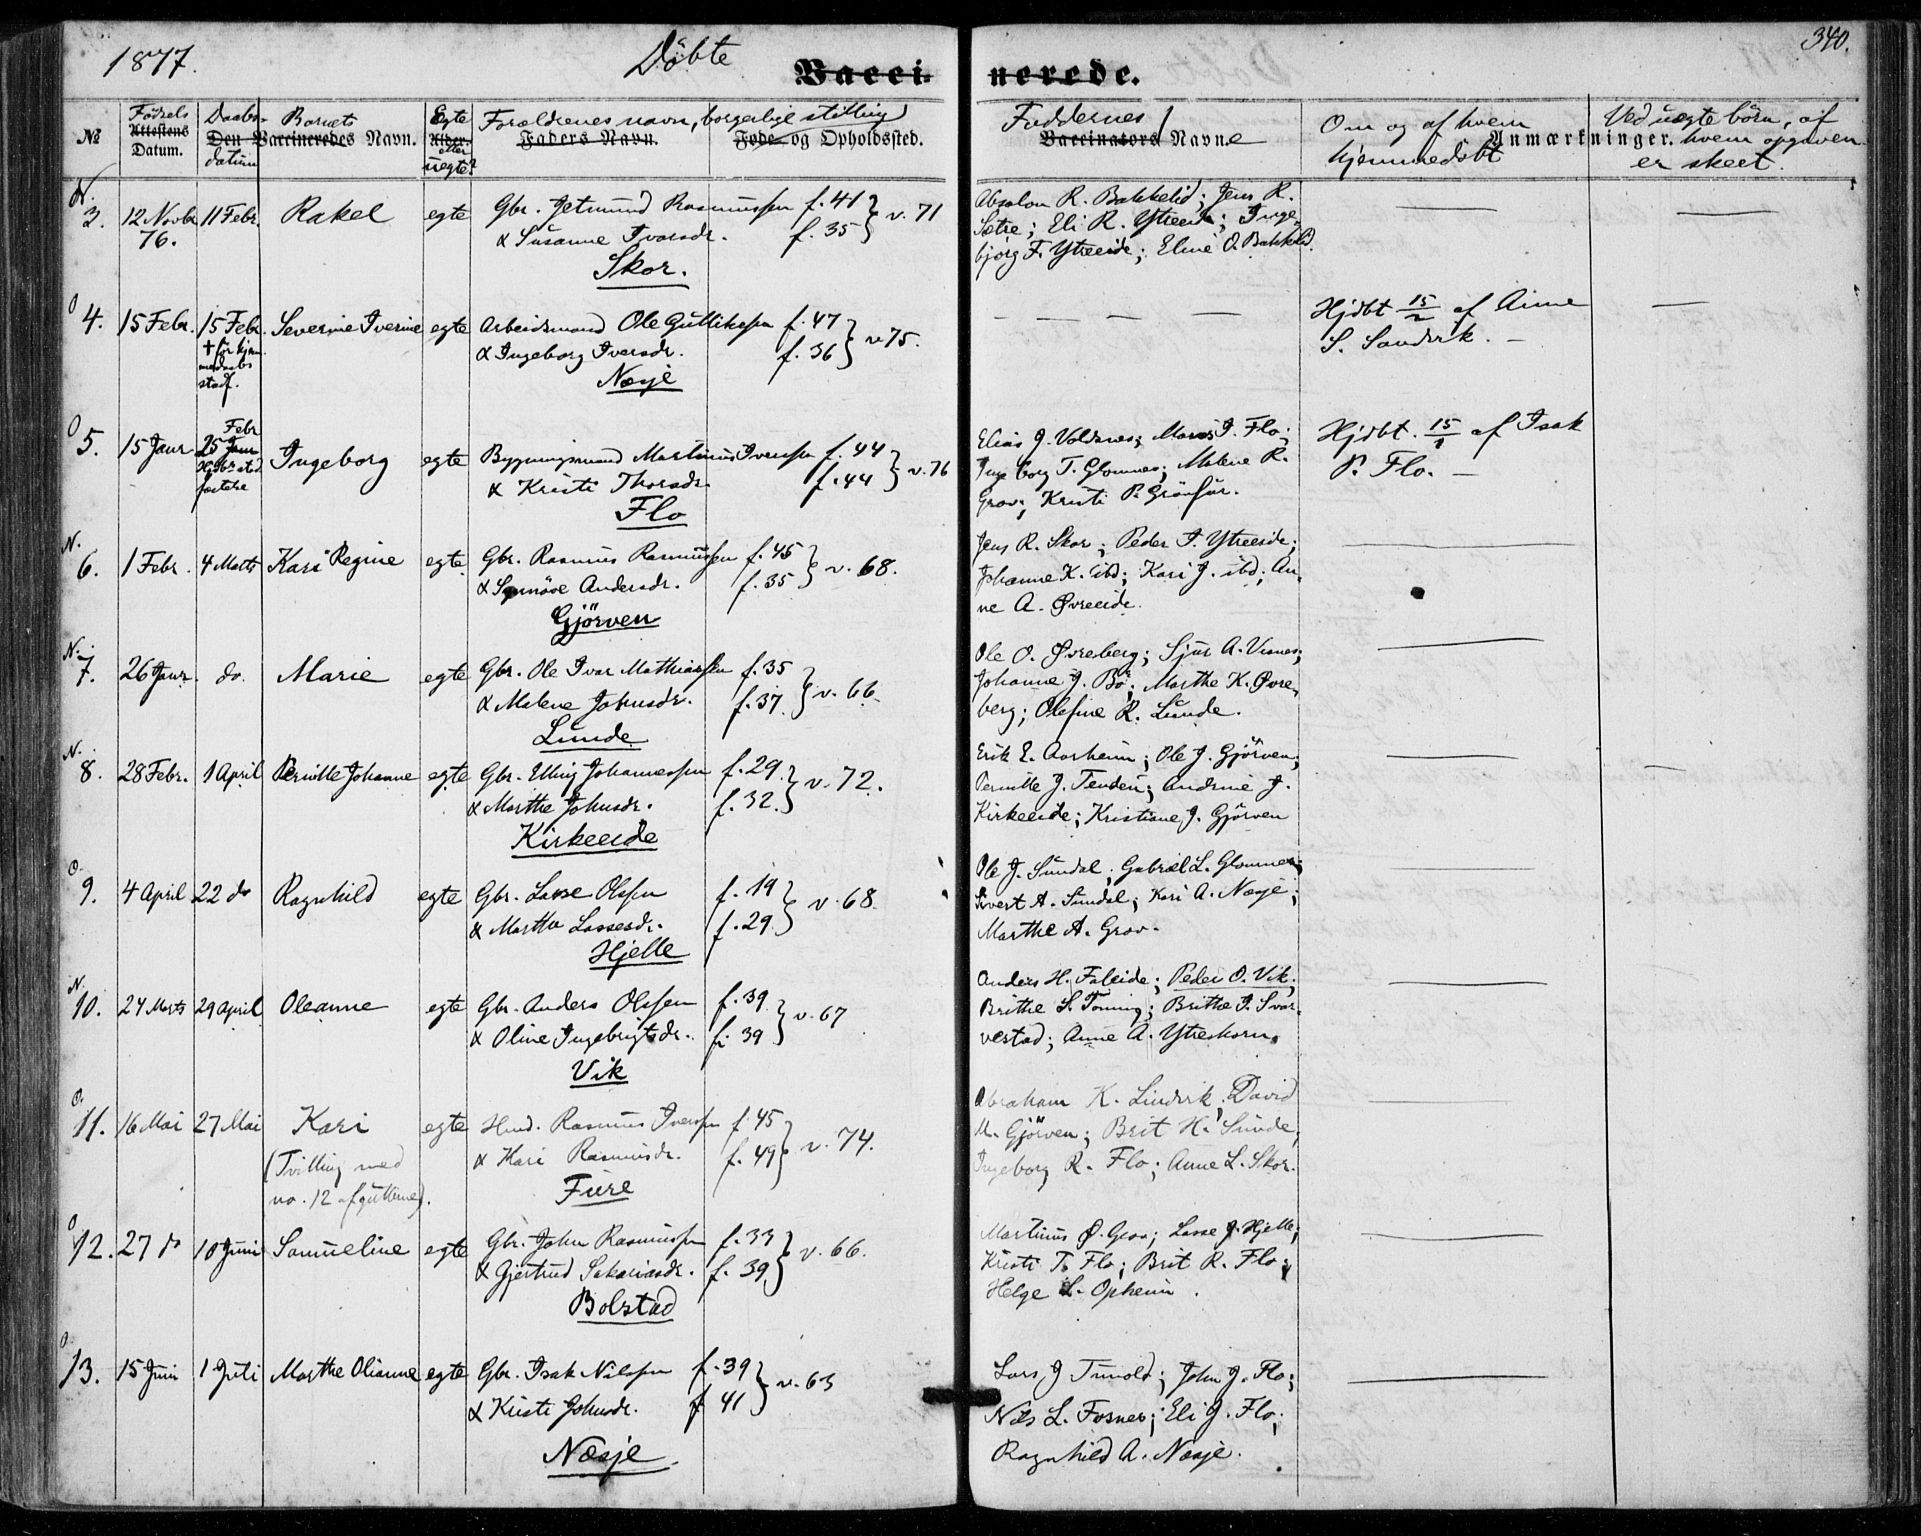 1877.
Döbte
340.
Vaccinerede.
№
Fødsels
Attestens
Datum.
Daabs- Barnets
Den Vaccineredes Navn.
datum
Egte
Alder.
eller
uegte?
Forældrenes navn, borgerlige stilling
Faders Navn. Føde- og Opholdssted.
Faddernes
Vaccinators Navne
Om og af hvem
hjemmedöbt
Anmærkninger.
Ved uegte börn, af
hvem opgaven
er skeet.
N.
3. 12 Novbr 11 Febr. Rakel egte Gbr. Jetmund Rasmussen f. 41 } v. 71
76. & Susanne Ivarsdr. f. 35
Skor.
Absalon R. Bakkelid; Jens R.
Sætre; Eli R. Ytreeide; Inge-
bjørg F. Ytreeide; Eline O. Bakkelid.
O
4. 15 Febr. 15 Febr. Severine Iverine egte Arbeidsmand Ole Gullikssen f. 47 } v. 75.
& Ingeborg Iversdr. f. 36
Nesje
Hjdbt 15/2 af Anne
S. Sandvik. —
O
5. 15 Janr Febr
25 Janr Ingeborg egte Bygningsmand Martinus Iverssen f. 44 } v. 76
& Kristi Thorsdr. f. 44
Flo
Elias J. Voldsnes; I. Flo;
Ingeborg T. Glomnes; Malene R.
Grov; Kristi P. Grönfur.
Hjdbt. 15/1 af Isak
P. Flo. —
N.
6. 1 Febr. 4 Marts Kari Regine egte Gbr. Rasmus Rasmussen f. 45 } v. 68.
& Synnöve Andersdr. f. 35
Gjörven
Jens R. Skor; Peder I. Ytreeide;
Johanne K. ibd; Kari J. ibd; An-
ne A. Øvreeide.
N.
7. 26 Janr. do. Marie egte Gbr. Ole Ivar Mathiassen f. 35 } v. 66.
& Malene Johnsdr. f. 37
Lunde
Ole O. Øvreberg; Sjur A. Visnes;
Johanne J. Bö; Marthe K. Øvre-
berg; Olefine R. Lunde.
N.
8. 28 Febr. 1 April Pernille Johanne egte Gbr. Elling Johannessen f. 29. } v. 72.
& Marthe Johnsdr. f. 32.
Kirkeeide
Erik E. Aarheim; Ole J. Gjörven;
Pernille J. Tenden; Andrine J.
Kirkeeide; Kristiane J. Gjörven
O.
9. 4 April 22 do Ragnhild egte Gbr. Lasse Olssen f. 19 } v. 68.
& Marthe Lassesdr. f. 29.
Hjelle
Ole J. Sundal; Gabriel L. Glomnes;
Sivert A. Sundal; Kari A. Nesje;
Marthe A. Grov.
N.
10. 24 Marts 29 April Oleanne egte Gbr. Anders Olssen f. 39. } v. 67
& Oline Ingebrigtsdr. f. 39
Vik
Anders H. Faleide; Peder O. Vik;
Brithe S. Tonning; Brithe I. Svar-
vestad; Anne A. Ytrehorn.
O.
11. 16 Mai 27 Mai Kari egte Hmd. Rasmus Iverssen f. 45 } v. 74.
(Tvilling med & Kari Rasmusdr. f. 49
no. 12 af gutterne).
Fure
Abraham K. Lindvik; David
M. Gjörven; Brit H. Sunde;
Ingeborg R. Flo; Anne L. Skor.
O
12. 27 do 10 Juni Samueline egte Gbr. John Rasmussen f. 33 } v. 66.
& Gjertrud Sakariasdr. f. 39
Bolstad
Martinus Ø. Grov; Lasse J. Hjelle;
Kristi T. Flo; Brit R. Flo;
Helge L. Opheim.
O.
13. 15 Juni 1 Juli Marthe Olianne egte Gbr. Isak Nilssen f. 39 } v. 63
& Kristi Johnsdr. f 41
Nesje.
Lars J Tunold; John J. Flo;
Nils L. Fosnes; Eli J. Flo;
Ragnhild A. Nesje.